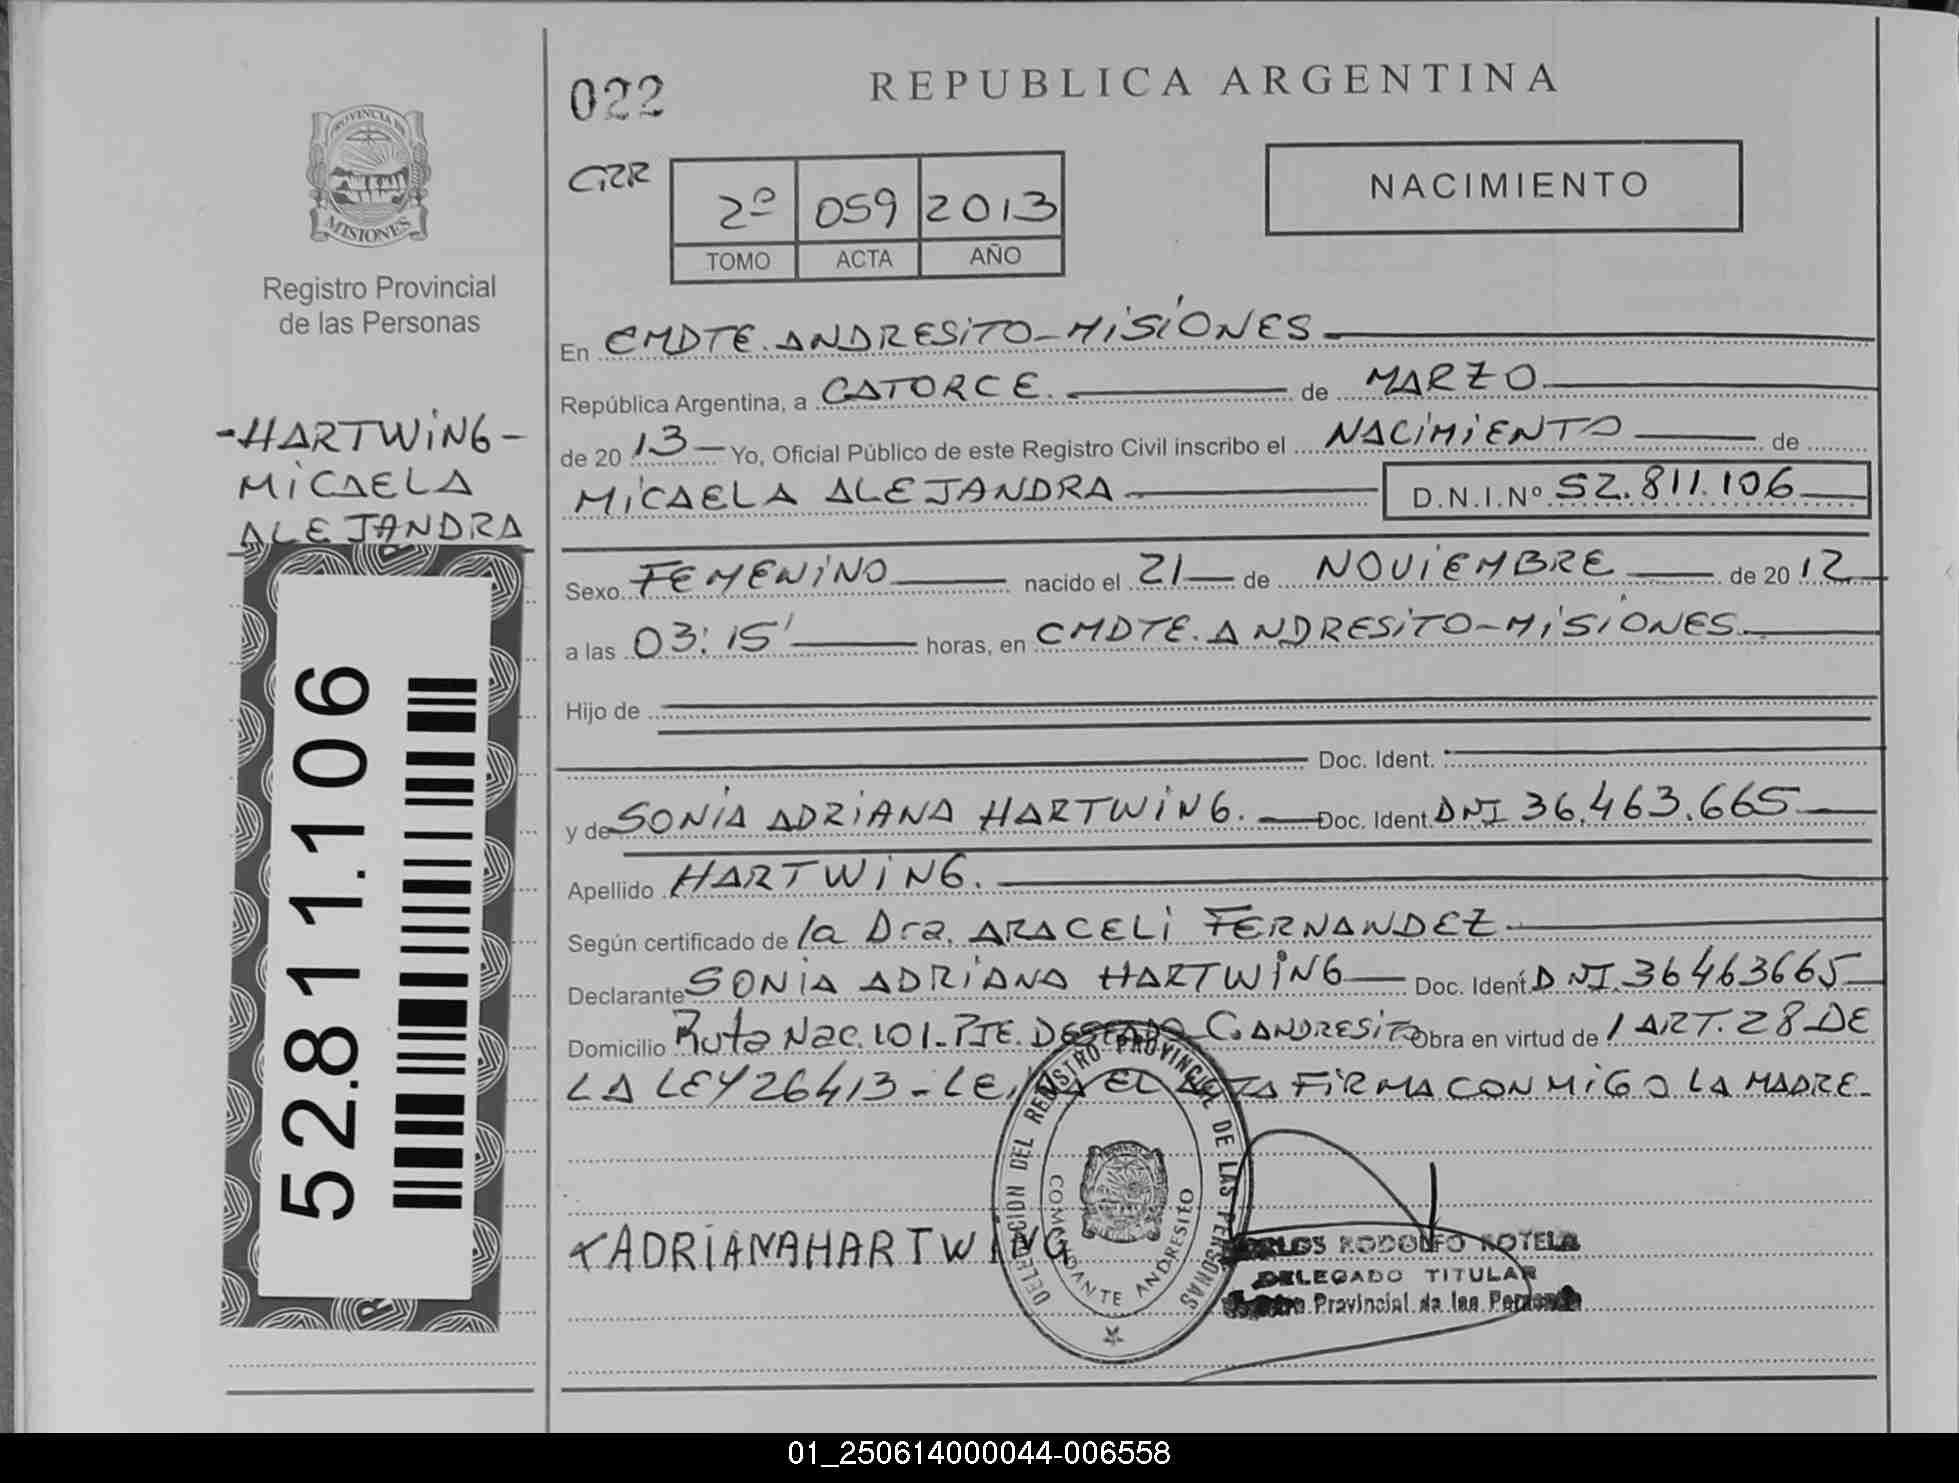 022
REPUBLICA ARGENTINA
PROVINCIA DE
MISIONES
Registro Provincial
de las Personas
NACIMIENTO
2º 059 2013
TOMO ACTA AÑO
-HARTWING-
MICAELA
ALEJANDRA
52.811.106
En CMDTE. ANDRESITO-MISIONES
República Argentina, a CATORCE. de MARZO
de 20 13 Yo, Oficial Público de este Registro Civil inscribo el NACIMIENTO de
MICAELA ALEJANDRA D.N.I.Nº 52.811.106
Sexo FEMENINO nacido el 21 de NOVIEMBRE de 20 12
a las 03:15' horas, en CMDTE. ANDRESITO-MISIONES
Hijo de
Doc. Ident.
y de SONIA ADRIANA HARTWING. Doc. Ident. DNI 36.463.665
Apellido HARTWING.
Según certificado de la Dra. ARACELI FERNANDEZ
Declarante SONIA ADRIANA HARTWING Doc. Ident. DNI. 36463665
Domicilio Ruta Nac. 101-PTE. DESEADO C. ANDRESITO Obra en virtud de / ART. 28 DE
LA LEY 26413- EL FIRMA CONMIGO LA MADRE-
DELEGACION DEL REGISTRO PROVINCIAL DE LAS PERSONAS
COMANDANTE ANDRESITO
ADRIANAHARTWING
CARLOS RODOLFO ROTELA
DELEGADO TITULAR
Provincial de las Personas
01_250614000044-006558